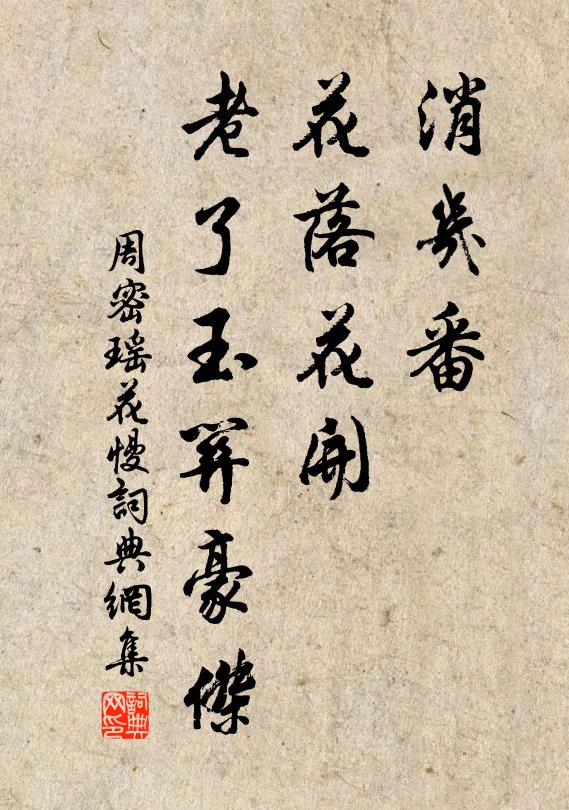 消幾番
花落花開
老了玉關豪傑
周密瑤花慢詞典網集
詞典网印